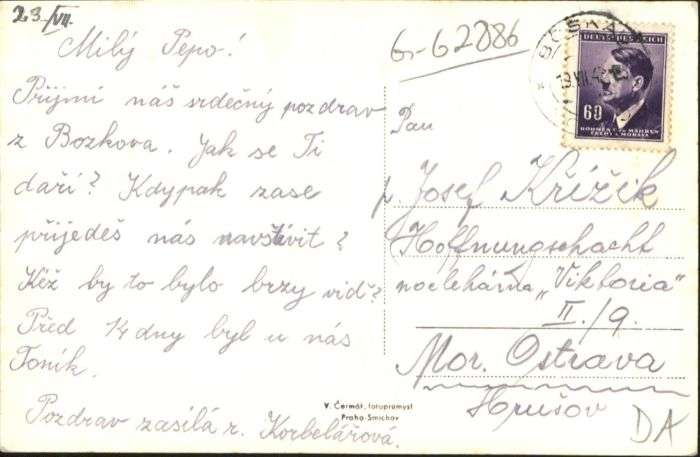 23/VII.
Milý Pepo!
Přijmi náš srdečný pozdrav
z Bozkova. Jak se Ti
daří? Kdypak zase
přijedeš nás navštívit?
Kéž by to bylo brzy viď?
Před 14 dny byl u nás
Toník.
Pozdrav zasílá r. Korbelářová.
V. Čermák, fotoprůmysl
Praha-Smíchov
G-62886
DEUTSCHES REICH
60
BÖHMEN UND MÄHREN
ČECHY A MORAVA
Pan
p. Josef Křížik
Hoffnungschacht
noclehárna „Viktoria"
II./9.
Mor. Ostrava
Hrušov
DA